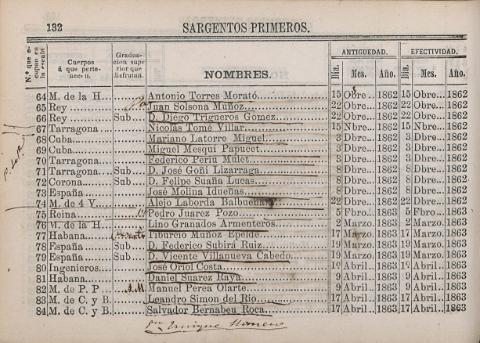 132 SARGENTOS PRIMEROS.
N.º que ocupan en la escala Cuerpos á que pertenecen. Graduacion superior que disfrutan. NOMBRES. ANTIGUEDAD. EFECTIVIDAD.
Dia. Mes. Año. Dia. Mes. Año.
64 M. de la H. Antonio Torres Morató 15 Obre 1862 15 Obre 1862
65 Rey Juan Solsona Muñoz 22 Obre 1862 22 Obre 1862
66 Rey Sub D. Diego Trigueros Gomez 22 Obre 1862 22 Obre 1862
67 Tarragona Nicolás Tomé Villar 15 Nbre 1862 15 Nbre 1862
68 Cuba Mariano Latorre Miguel 3 Dbre 1862 3 Dbre 1862
69 Cuba Miguel Mesqui Papucet 3 Dbre 1862 3 Dbre 1862
70 Tarragona Federico Periu Mulet 8 Dbre 1862 8 Dbre 1862
71 Tarragona Sub D. José Goñi Lizarraga 8 Dbre 1862 8 Dbre 1862
72 Corona Sub D. Felipe Suaña Lucas 8 Dbre 1862 8 Dbre 1862
73 España José Molina Idueñas 8 Dbre 1862 8 Dbre 1862
74 M. de 4 V. Alejo Laborda Balbuena 22 Dbre 1862 22 Dbre 1862
75 Reina Pedro Juarez Pozo 5 Fbro 1863 5 Fbro 1863
76 M. de la H. Lino Granados Armenteros 2 Marzo 1863 2 Marzo 1863
77 Habana Tiburcio Muñoz Epelde 17 Marzo 1863 17 Marzo 1863
78 España Sub D. Federico Subirá Ruiz 19 Marzo 1863 19 Marzo 1863
79 España Sub D. Vicente Villanueva Cabedo 19 Marzo 1863 19 Marzo 1863
80 Ingenieros José Oriol Costa 1º Abril 1863 1º Abril 1863
81 Habana Daniel Suarez Raya 9 Abril 1863 9 Abril 1863
82 M. de P. P Manuel Perea Olarte 9 Abril 1863 9 Abril 1863
83 M. de C. y B. Leandro Simon del Rio 17 Abril 1863 17 Abril 1863
84 M. de C. y B. Salvador Bernabeu Roca 17 Abril 1863 17 Abril 1863
Enrique Romero